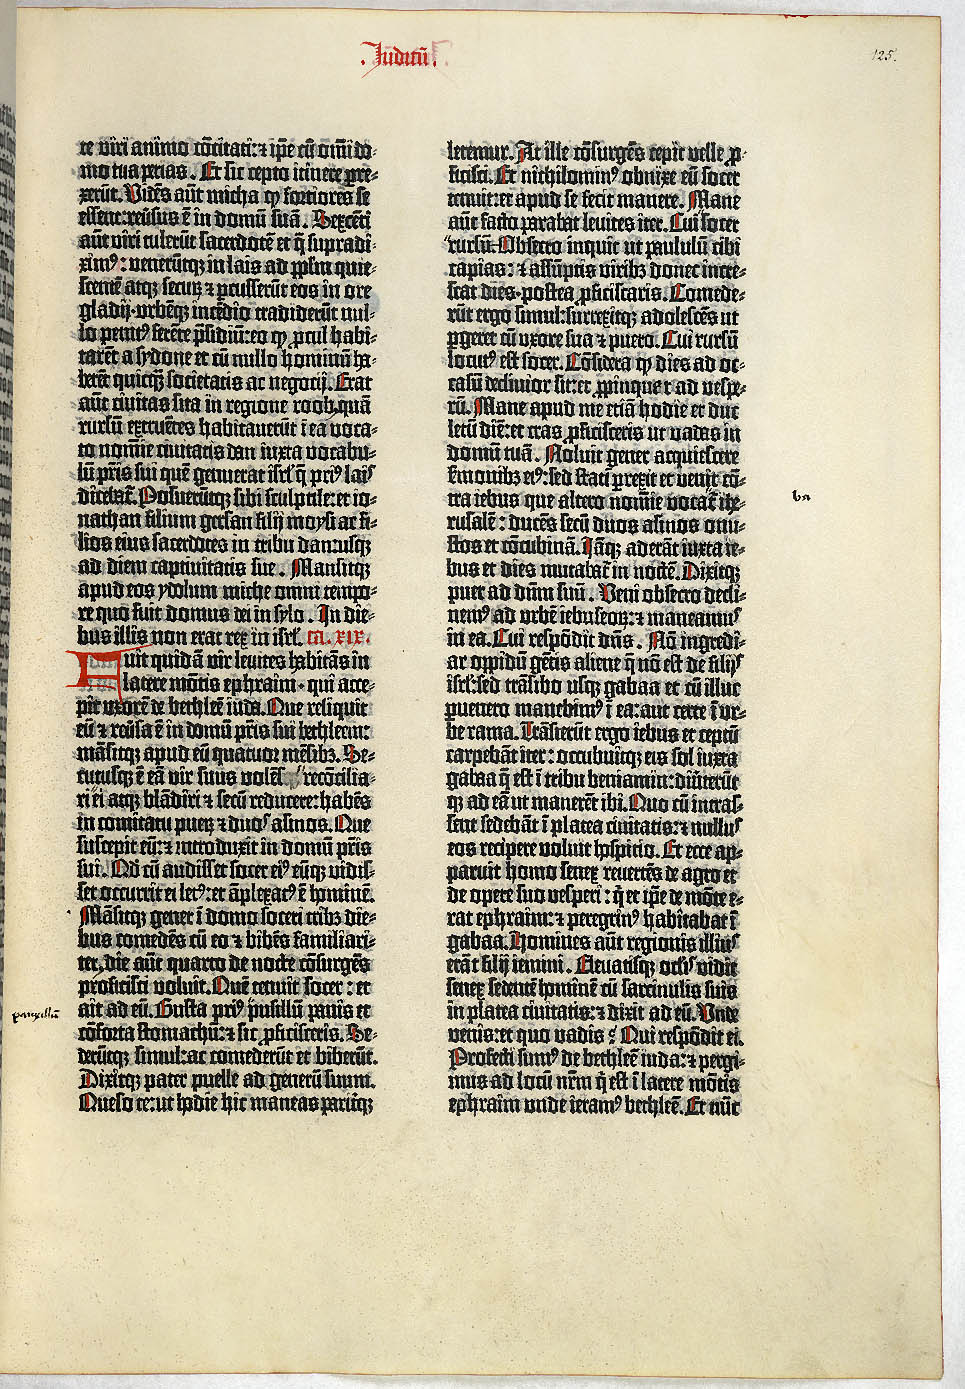 Judicū
125.
te viri animo cōcitati: ⁊ ip̄e cū om̄i do-
mo tua pereas. Et sic cepto itinere ꝑre-
xerūt. Vidēs aūt micha ꝙ fortiores se
essent: reūsus ē in domū suā. Sexcēti
aūt viri tulerūt sacerdotē et q̄ supradi-
ximꝰ: venerūtqꝫ in lais ad pp̄lm quie-
scentē atqꝫ securū ⁊ ꝑcusserūt eos in ore
gladij. vrbēqꝫ incēdio tradiderūt nul-
lo penitꝰ ferente p̄sidiū: eo ꝙ ꝓcul habi-
tarēt a sydone et cū nullo hominū ha-
berēt quicq̄ꝫ societatis ac negocij. Erat
aūt civitas sita in regione roob. quā
rursū extruētes habitaverūt ī ea voca-
to nomīe civitatis dan iuxta vocabu-
lū pr̄is sui quē genuerat isrl̄. q̄ priꝰ lais
dicebat̄. Posuerūtqꝫ sibi sculptile: et io-
nathan filium gersan filij moysi ac fi-
lios eius sacerdotes in tribu dan: usqꝫ
ad diem captivitatis sue. Mansitqꝫ
apud eos ydolum miche omni tempo-
re quo fuit domus dei in sylo. In die-
bus illis non erat rex in isrl̄. ca. xix.
Fuit quidā vir levites habitās in
latere mōtis ephraim. qui acce-
pit uxorē de bethleē iuda. Que reliquit
eū ⁊ reūsa ē in domū pr̄is sui bethleem:
māsitqꝫ apud eū quatuor mēsibꝫ. Se-
cutusqꝫ ē eā vir suus volēs reconcilia-
ri ei atqꝫ blādiri ⁊ secū reducere: habēs
in comitatu puerū ⁊ duos asinos. Que
suscepit eū: ⁊ introduxit in domū pr̄is
sui. Qd̄ cū audisset socer eiꝰ eūqꝫ vidis-
set occurrit ei letꝰ: et āplexatꝰ ē hominē.
Māsitqꝫ gener ī domo soceri tribꝫ die-
bus comedēs cū eo ⁊ bibēs familiari-
ter. die aūt quarto de nocte cōsurgēs
proficisci voluit. Quē tenuit socer: et
ait ad eū. Gusta priꝰ pusillū panis et
cōforta stomachū: ⁊ sic ꝓficisceris. Se-
derūtqꝫ simul: ac comederūt et biberūt.
Dixitqꝫ pater puelle ad generū suum.
Queso te: ut hodie hic maneas paritqꝫ
letemur. At ille cōsurgēs cepit velle ꝓ-
ficisci. Et nichilominꝰ obnixe eū socer
tenuit: et apud se fecit manere. Mane
aūt facto parabat levites iter. Cui socer
rursū. Obsecro inquit ut paululū cibi
capias: ⁊ assūptis viribꝫ donec incre-
scat dies. postea ꝓficiscaris. Comede-
rūt ergo simul: surrexitqꝫ adolescēs ut
ꝑgeret cū uxore sua ⁊ puero. Cui rursū
locutꝰ est socer. Cōsidera ꝙ dies ad oc-
casū declivior sit: et ꝓpinquet ad vespe-
rū. Mane apud me etiā hodie et duc
letū diē: et cras ꝓficisceris ut vadas in
domū tuā. Noluit gener acquiescere
s̄monibꝫ eiꝰ: sed stati perexit et venit cō-
tra iebus que altero nomīe vocat̄ ihe-
rusalē: ducēs secū duos asinos onu-
stos et cōcubinā. Iāqꝫ aderāt iuxta ie-
bus et dies mutabat̄ in noctē. Dixitqꝫ
puer ad dn̄m suū. Veni obsecro decli-
nemꝰ ad urbē iebuseoꝝ: ⁊ maneamus
in ea. Cui respōdit dn̄s. Nō ingredi-
ar oppidū gētis aliene q̄ nō est de filijs
isrl̄: sed trāsibo usqꝫ gabaa et cū illuc
puenero manebimꝰ ī ea: aut certe ī ur-
be rama. Trāsierūt ergo iebus et ceptū
carpebāt iter: occubuitqꝫ eis sol iuxta
gabaa q̄ est ī tribu beniamin: diūterūt
qꝫ ad eā ut manerēt ibi. Quo cū intras-
sent sedebāt ī platea civitatis: ⁊ nullus
eos recipere voluit hospicio. Et ecce ap-
paruit homo senex revertēs de agro et
de opere suo vesperi: q̄ et ip̄e de mōte e-
rat ephraim: ⁊ peregrinꝰ habitabat ī
gabaa. Homines aūt regionis illius
erāt filij iemini. Elevatisqꝫ oclis vidit
senex sedentē hominē cū sarcinulis suis
in platea civitatis: ⁊ dixit ad eū. Unde
venis: et quo vadis? Qui respōdit ei.
Profecti sumꝰ de bethleē iuda: ⁊ pergi-
mus ad locū nr̄m q̄ est ī latere mōtis
ephraim unde ieramꝰ bethleē. Et nūc
pauxillū
ba